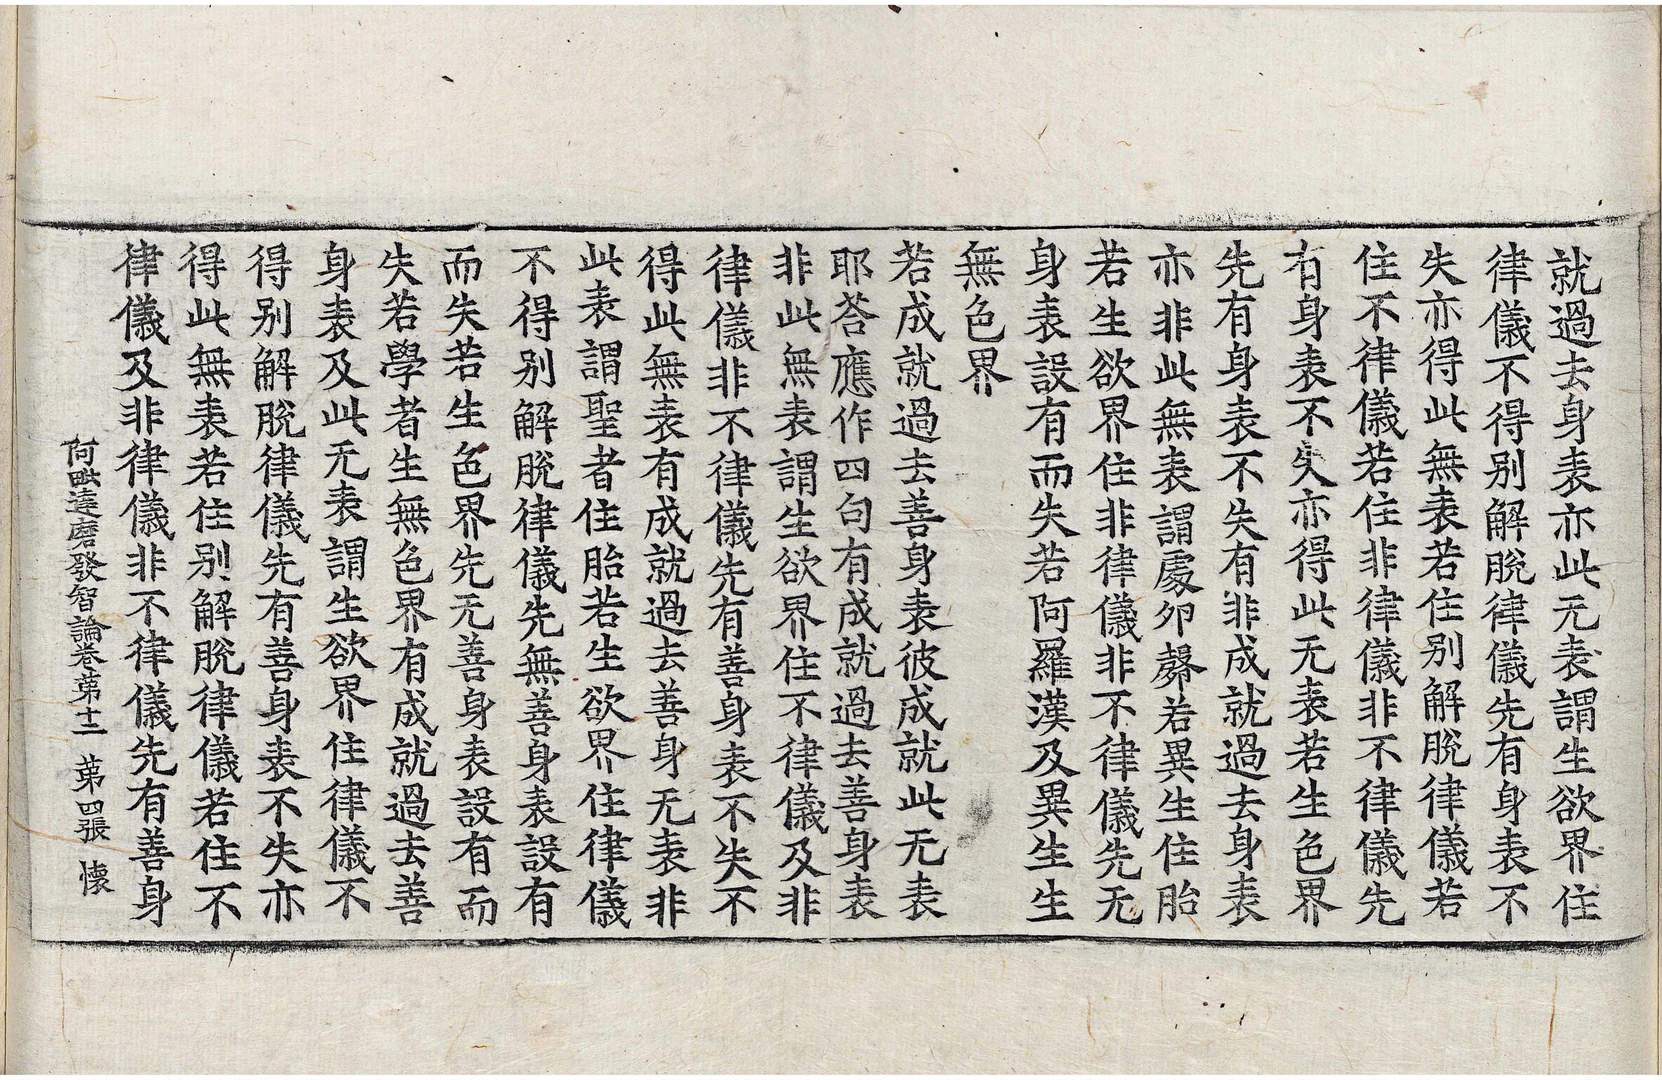 就過去身表亦此无表謂生欲界住
律儀不得别解脫律儀先有身表不
失亦得此無表若住别解脫律儀若
住不律儀若住非律儀非不律儀先
有身表不失亦得此无表若生色界
先有身表不失有非成就過去身表
亦非此無表謂處卵㲉若異生住胎
若生欲界住非律儀非不律儀先无
身表設有而失若阿羅漢及異生生
無色界
若成就過去善身表彼成就此无表
耶荅應作四句有成就過去善身表
非此無表謂生欲界住不律儀及非
律儀非不律儀先有善身表不失不
得此無表有成就過去善身无表非
此表謂聖者住胎若生欲界住律儀
不得别解脫律儀先無善身表設有
而失若生色界先无善身表設有而
失若學者生無色界有成就過去善
身表及此无表謂生欲界住律儀不
得别解脫律儀先有善身表不失亦
得此無表若住别解脫律儀若住不
律儀及非律儀非不律儀先有善身
阿毗達磨發智論卷第十二 第四張 懷